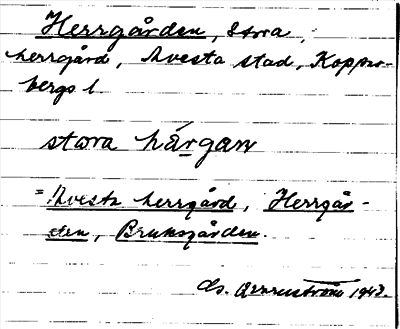 Herrgården, Stora,
herrgård, Avesta stad, Koppar-
bergs l.
stora härgan
= Avesta herrgård, Herrgår-
den, Bruksgården.
1943.